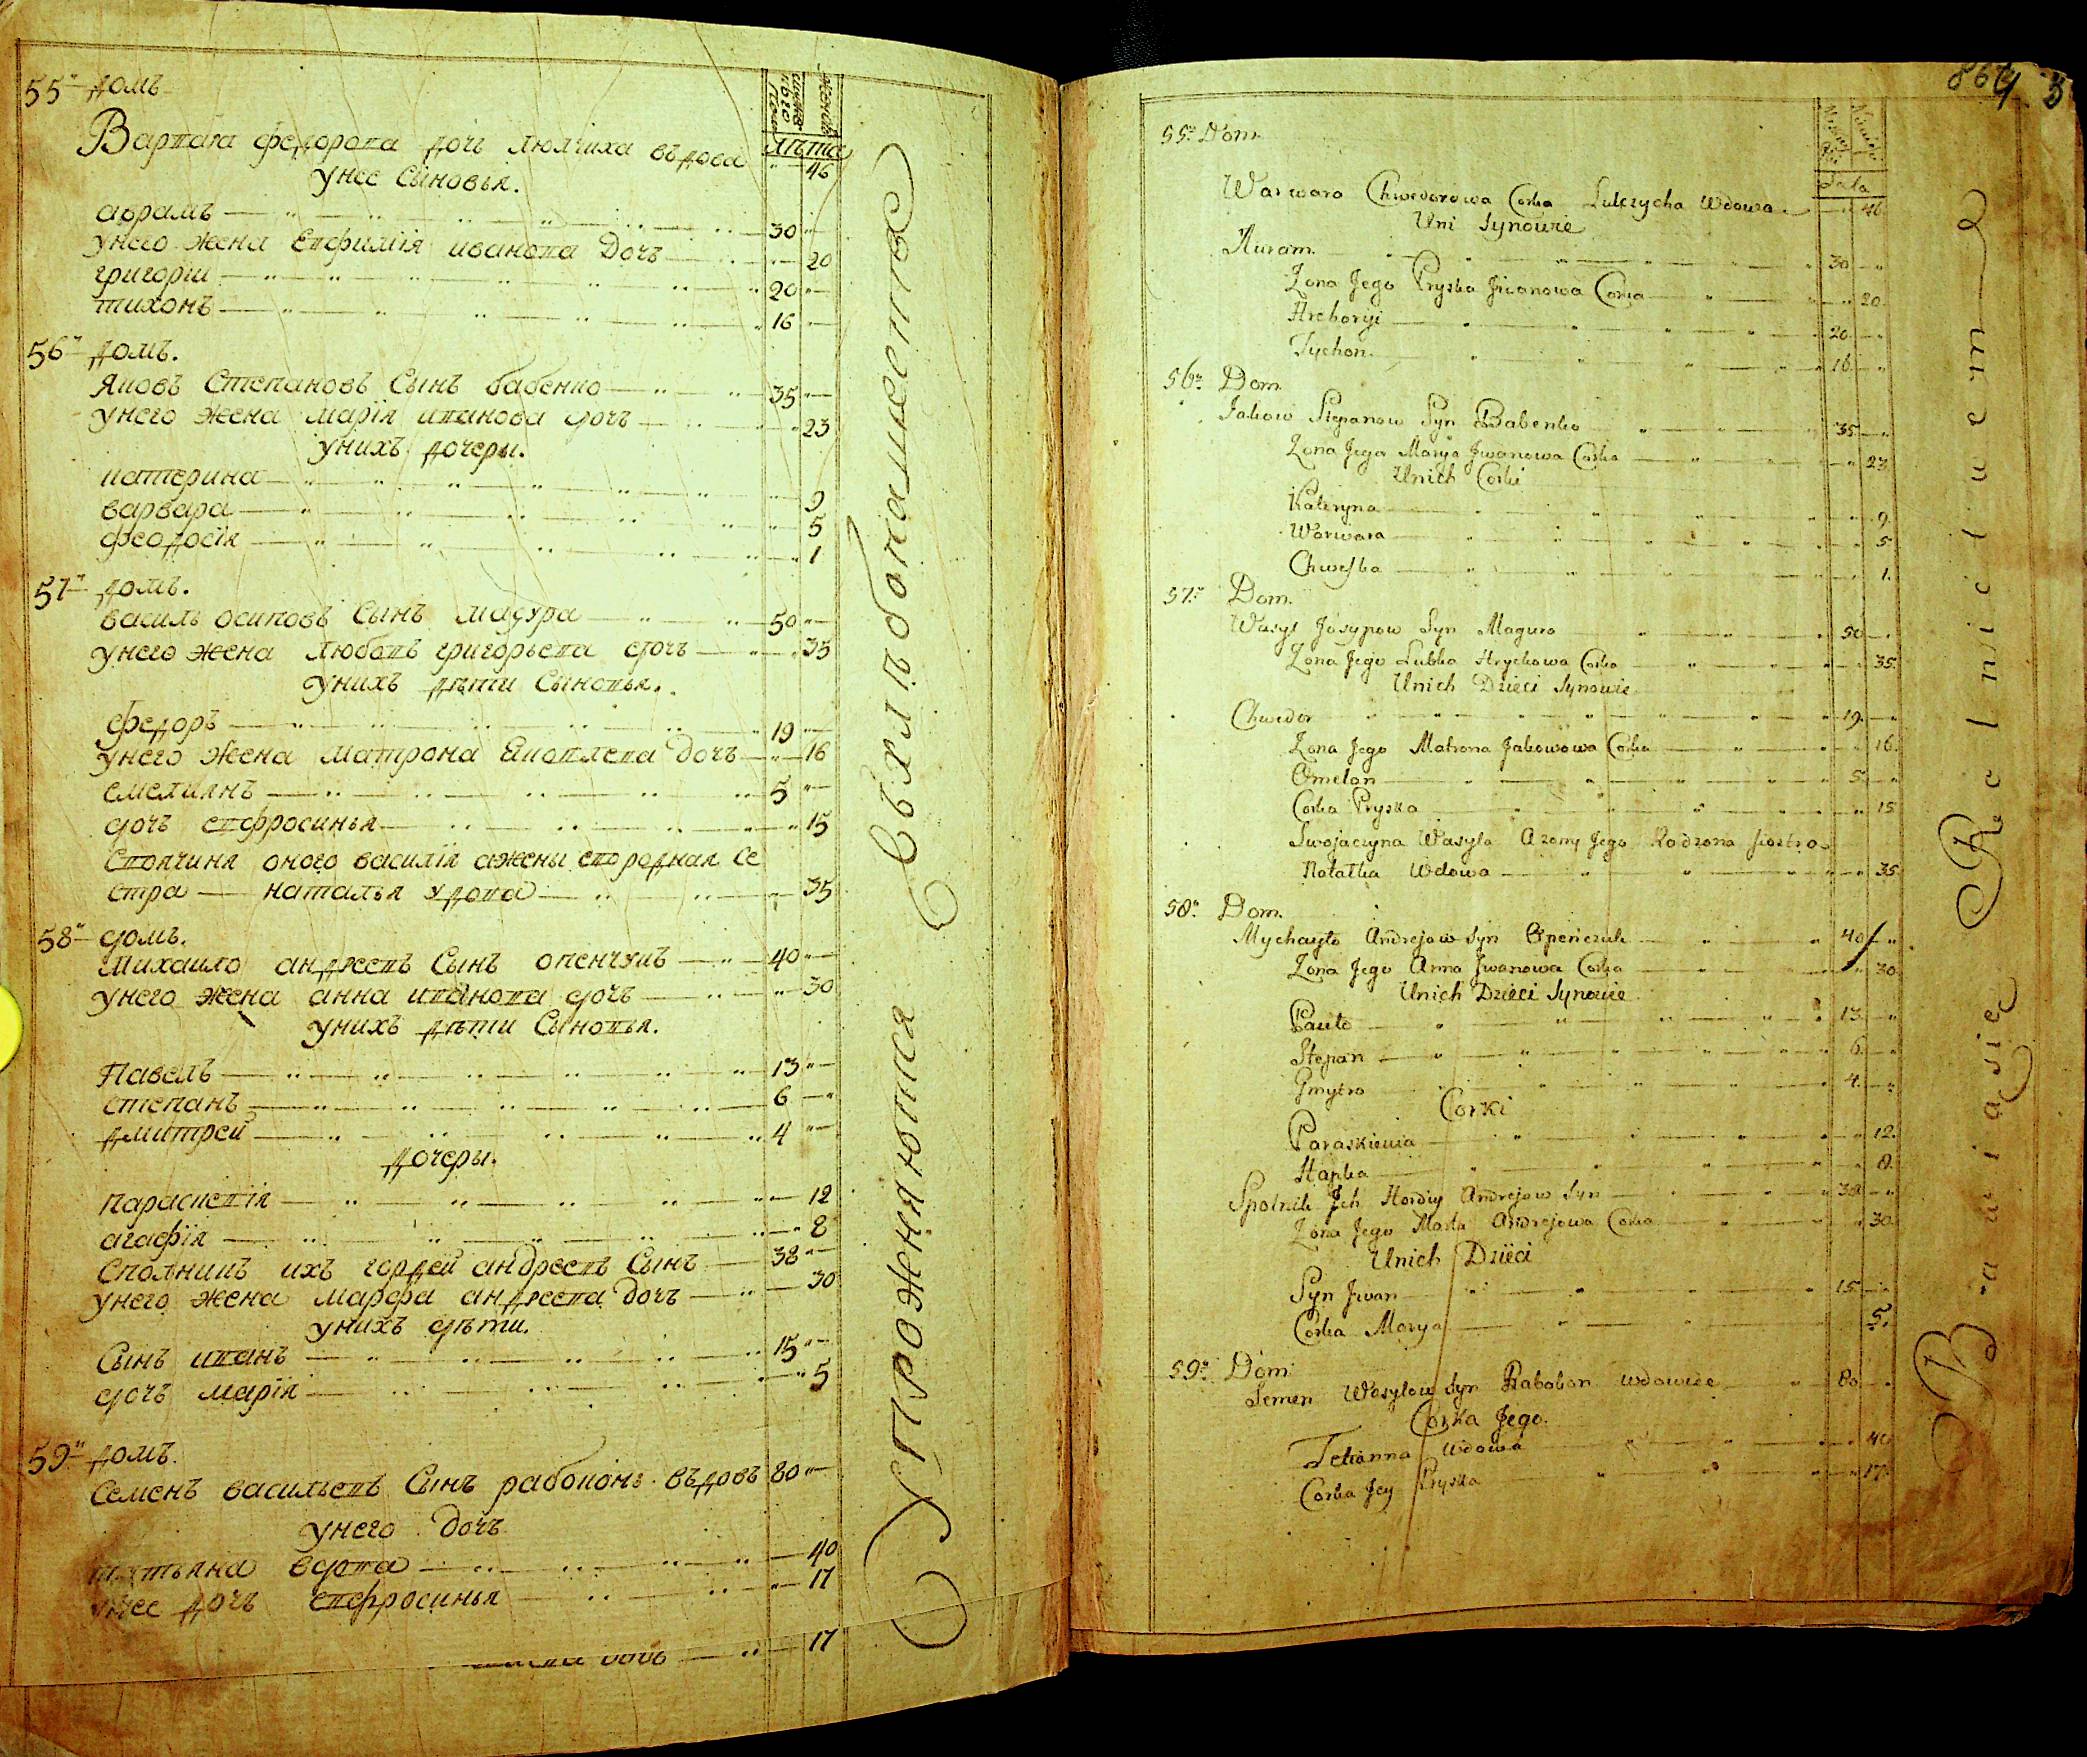 55 домъ
мужеска пола
женска
лѣта
Варвара федорова дочь люлчиха въдова " 46
унее Сыновья.
абрамъ 30 "
унего жена Евфимія иванова дочь " 20
григорій 20 "
тихонъ 16 "
56 домъ.
Яковъ Степановъ Сынъ бабенко 35 "
унего жена марія иванова дочь " 23
унихъ дочеры.
катерина " 9
варвара " 5
феодосія " 1
57 домъ.
василь осиповъ Сынъ мацура 50 "
унего жена любовь григорьева дочь " 35
унихъ дѣти Сыновья.
федоръ 19 "
унего жена матрона Яковлева дочь " 16
емельянъ 5 "
дочь евфросинья " 15
Своячиня оного василія ажены его роднал се
стра наталья удова " 35
58 домъ.
Михаило андреевъ Сынъ опенчукъ 40 "
унего жена анна иванова дочь " 30
унихъ дѣти Сыновья.
Павелъ 13 "
степанъ 6 "
дмитрей 4 "
дочеры.
параскевія " 12
агафія " 8
Сполникъ ихъ гордей андреевъ Сынъ 38 "
унего жена марфа андреева дочь " 30
унихъ дѣти.
Сынъ иванъ 15 "
дочь марія " 5
59 домъ.
Семенъ васильевъ Сынъ рабоконь въдовъ 80 "
унего дочь
татьяна вдова " 40
унее дочь евфросинья " 17
дочь 17
Упрожняются Съхлѣбопашества
864 3
55 Dom.
Lata
Warwara Chwedorowa Corka Lulczycha Wdowa " 46
Uni Synowie
Auram. 30 "
Zona Jego Pryska Jwanowa Corka " 20
Hrehoryi 20 "
Tychon. 16 "
56 Dom.
Jakow Stepanow Syn Babenko 35 "
Zona Jego Marya Jwanowa Corka " 23
Unich Corki
Kateryna " 9
Warwara " 5
Chweska " 1.
57 Dom.
Wasyl Josypow Syn Magura 50 "
Zona Jego Lubka Hryckowa Corka " 35.
Unich Dzieci Synowie
Chwedor 19 "
Zona Jego Matrona Jakowowa Corka " 16.
Omelan 5 "
Corka Pryska " 15
Swojaczyna Wasyla Azony Jego Rodzona siostra
Natalka Wdowa " 35
58 Dom.
Mychayło Andrejow Syn Openczuk 40 "
Zona Jego Anna Jwanowa Corka " 30
Unich Dzieci Synowie
Pawło 13 "
Stepan 6 "
Gmytro 4 "
Corki
Paraskiewia " 12
Hapka " 8.
Społnik Jch Hordiy Andrejow Syn 38 "
Zona Jego Marta Andrejowa Corka " 30
Unich Dzieci
Syn Jwan 15 "
Corka Marya 5.
59 Dom
Semen Wasylow Syn Rabokon wdowiec 80 "
Corka Jego.
Tetianna Wdowa " 40
Corka Jey Pryska " 17
Bawiasie Relnictwem